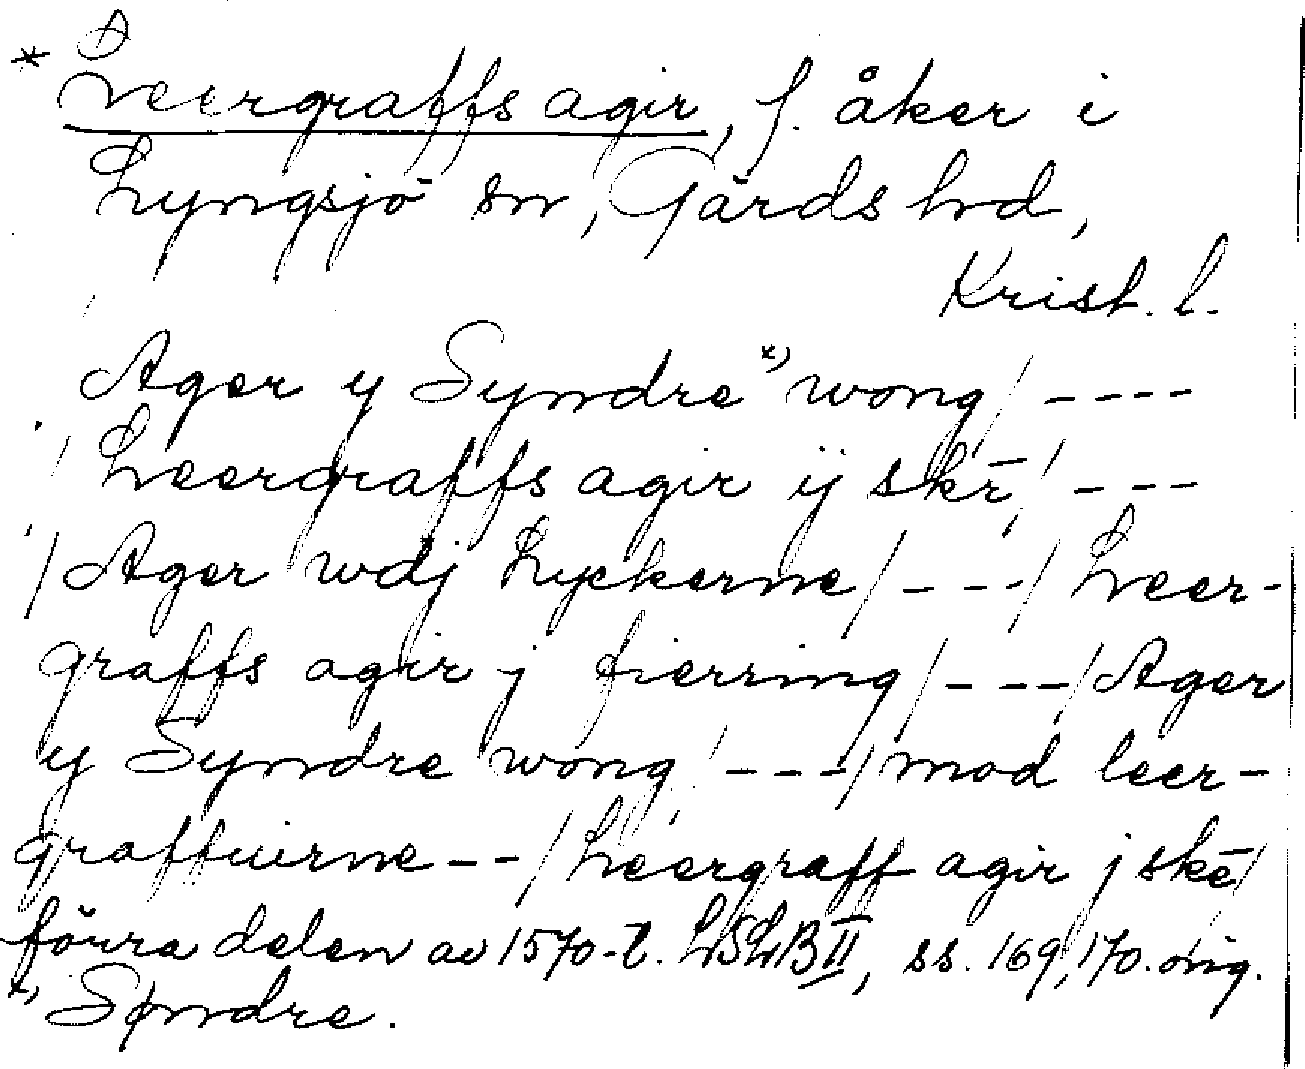 * Leergraffs agir, f. åker i
Lyngsjö sn, Gärds hd,
Krist. l.
Ager y Syndre *) wong / ----
Leergraffs agir ij skē / ---
/ Ager wdj Lyckerne / --- / Leer-
graffs agir j fierring / --- / Ager
y Syndre wong / --- / mod leer-
graffuirne -- / Leergraff agir j skē /
förra delen av 1570-t. LSLB II, ss. 169, 170. orig.
*) Søndre.